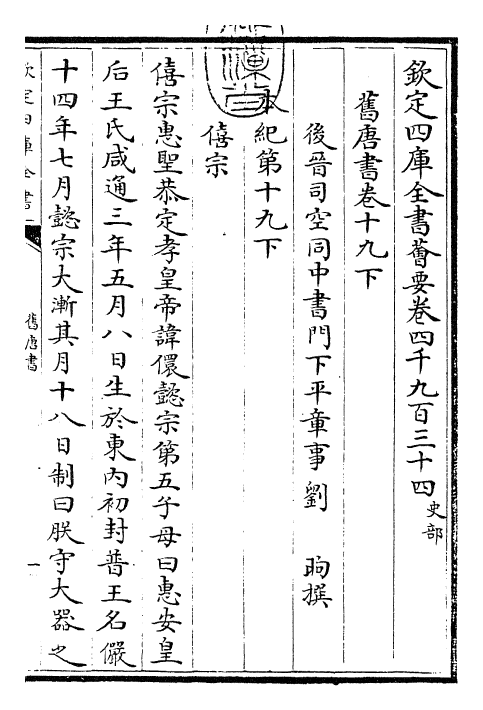 欽定四庫全書薈要卷四千九百三十四史部
舊唐書卷十九下
後晉司空同中書門下平章事劉昫撰
本紀第十九下
僖宗
僖宗惠聖恭定孝皇帝諱儇懿宗第五子母曰惠安皇
后王氏咸通三年五月八日生於東內初封普王名儼
十四年七月懿宗大漸其月十八日制曰朕守大器之
欽定四庫全書
舊唐書
一